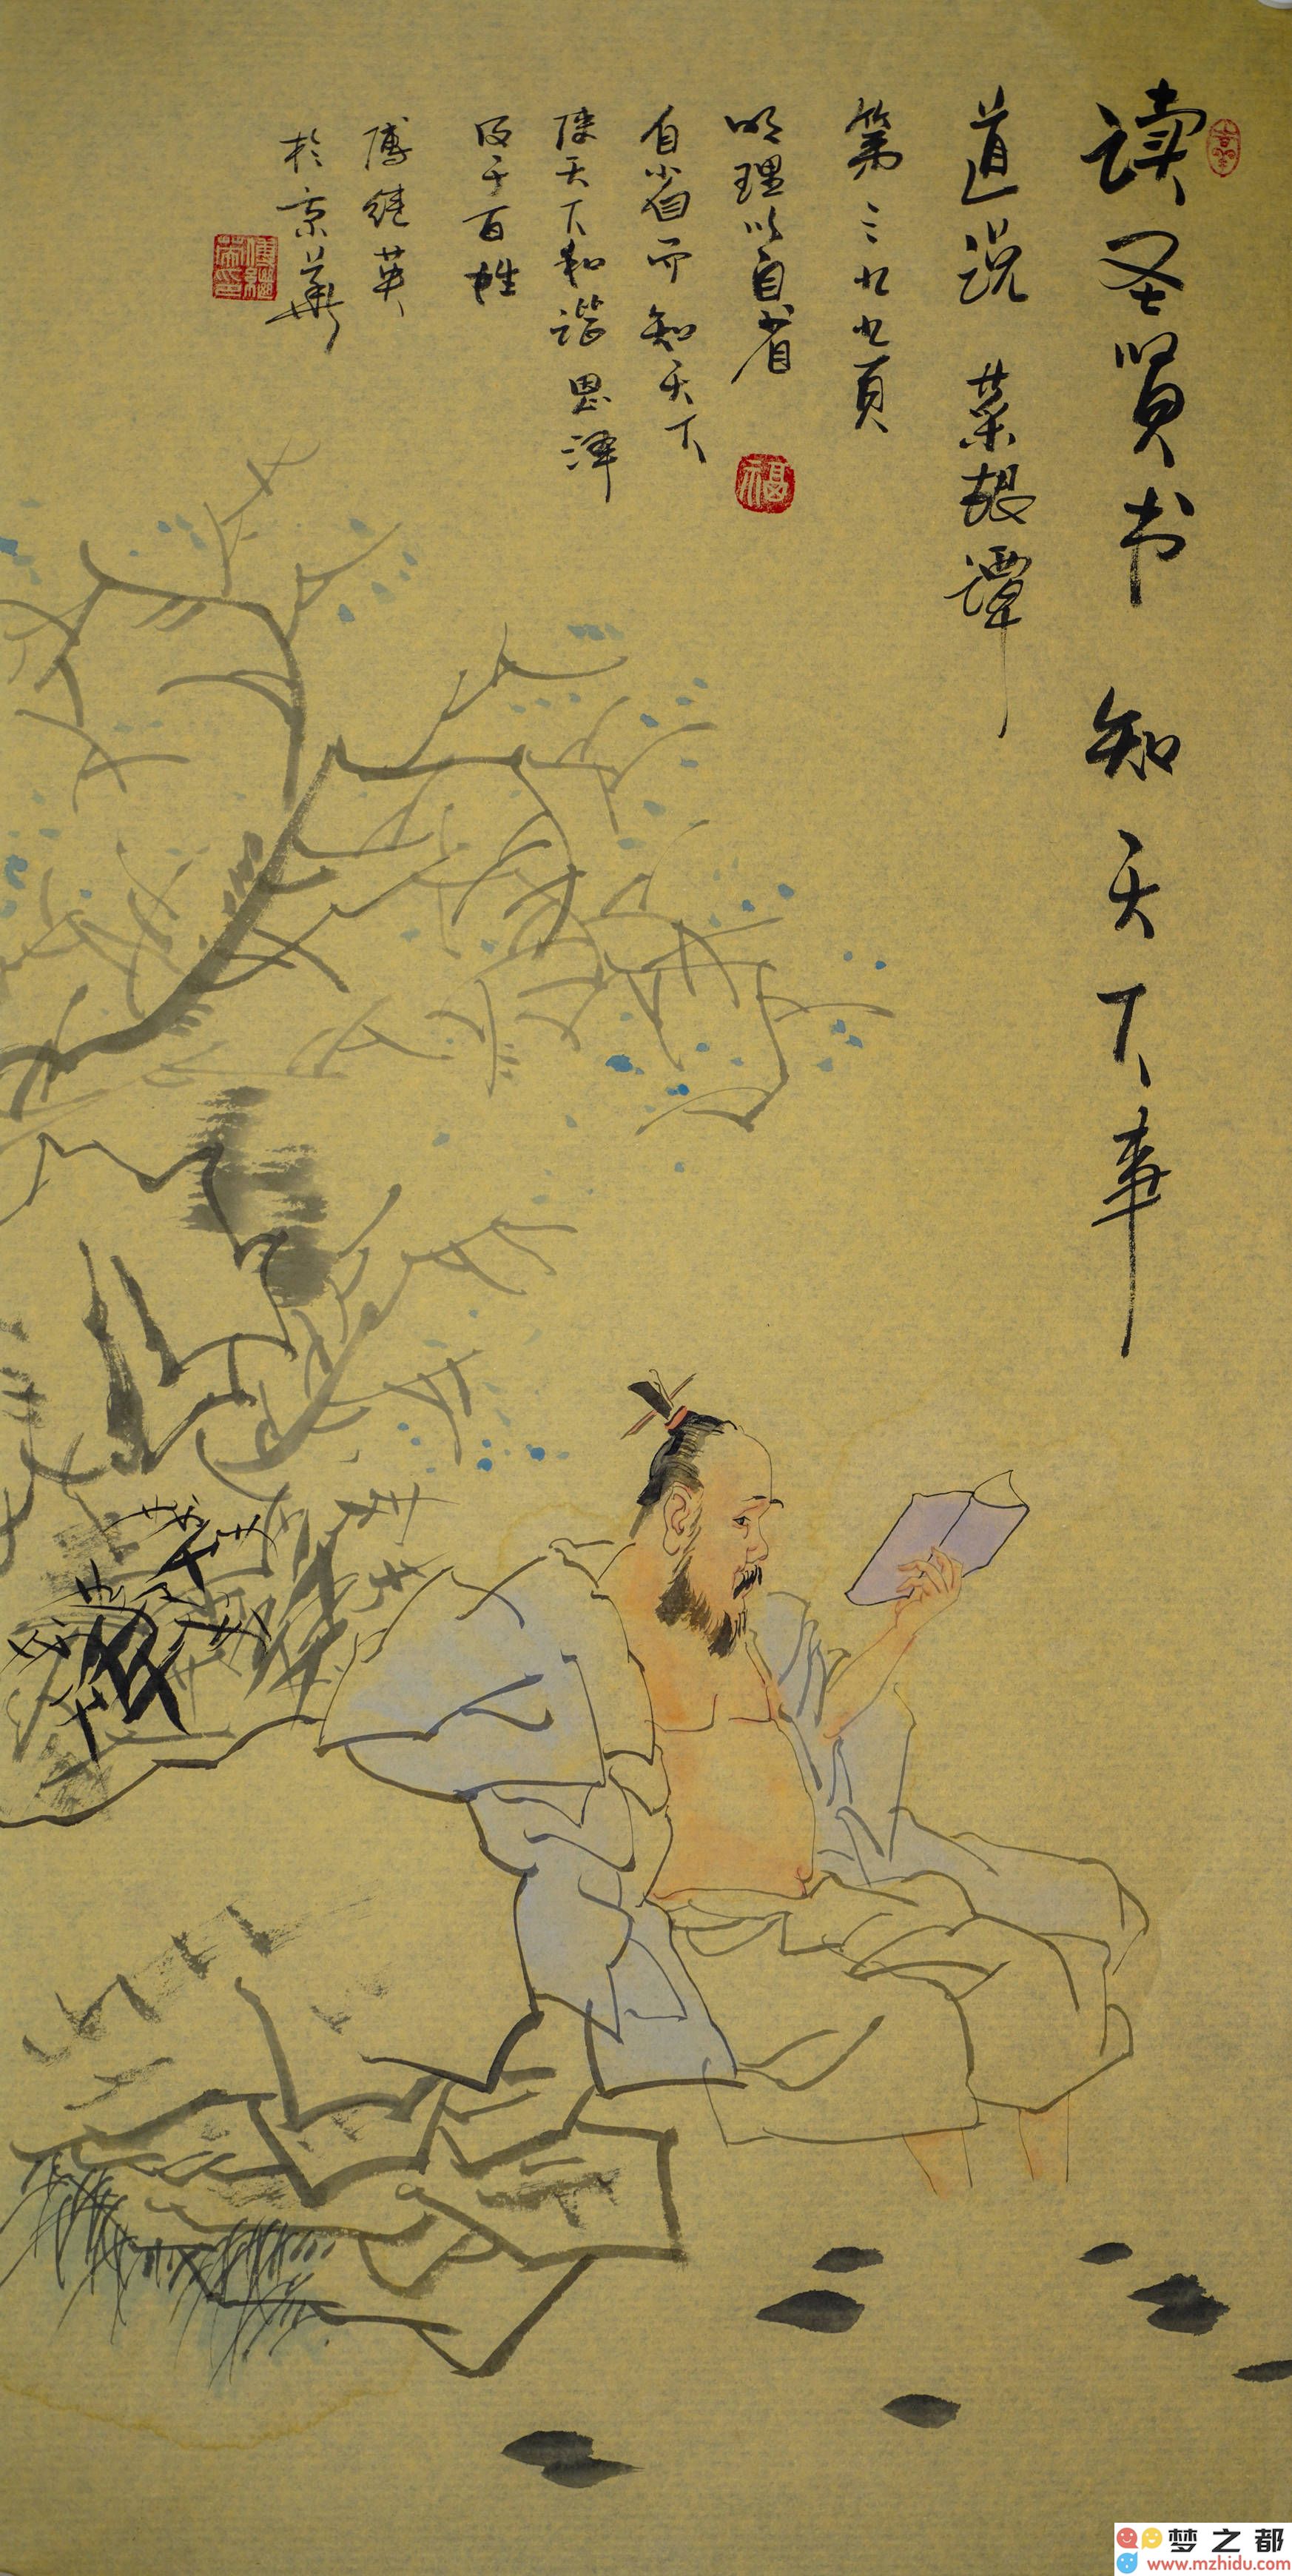 读圣贤书 知天下事
道说 菜根谭
第三九九页
明理以自省
自省而知天下
使天下和谐恩泽
及于百姓
傅继英
於京華
福
梦之都
www.mzhidu.com